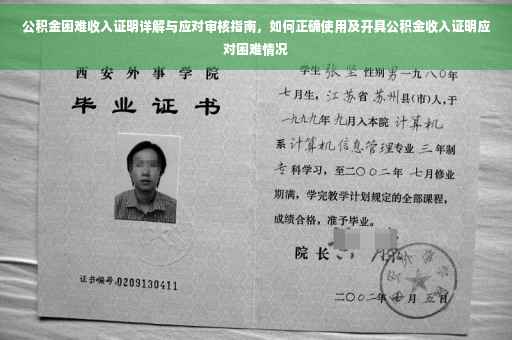 公积金困难收入证明详解与应对审核指南，如何正确使用及开具公积金收入证明应
对困难情况
西安外事学院
毕业证书
证书编号:0209130411
学生张坚性别男一九八〇年
七月生，江苏省苏州县(市)人，于
一九九九年九月入本院计算机
系计算机信息管理专业三年制
专科学习，至二〇〇二年七月修业
期满，学完教学计划规定的全部课程，
成绩合格，准予毕业。
院长
二〇〇二年 月五日